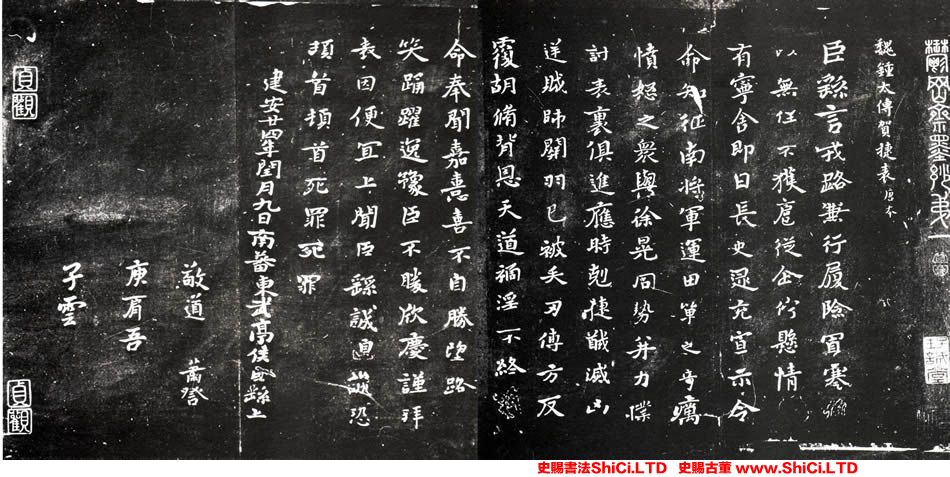 鬱岡齋墨妙第一
魏鍾太傅賀捷表唐本
臣繇言戎路兼行履險冒寒臣繇
以無任不獲扈從企佇懸情
有寧舍即日長史逯充宣示令
命知征南將軍運田單之奇厲
憤怒之衆與徐晃同勢并力撲
討表裏俱進應時剋捷馘滅凶
逆賊帥關羽已被矢刃傅方反
覆胡脩背恩天道禍淫不終
命奉聞嘉憙喜不自勝望路
笑踊躍逸豫臣不勝欣慶謹拜
表因便宜上聞臣繇誠皇誠恐
頓首頓首死罪死罪
建安廿四年閏月九日南蕃東武亭侯臣繇上
敬道
蕭譽
庾肩吾
子雲
貞觀
貞觀
史賜書法ShiCi.LTD 史賜古董 www.ShiCi.LTD